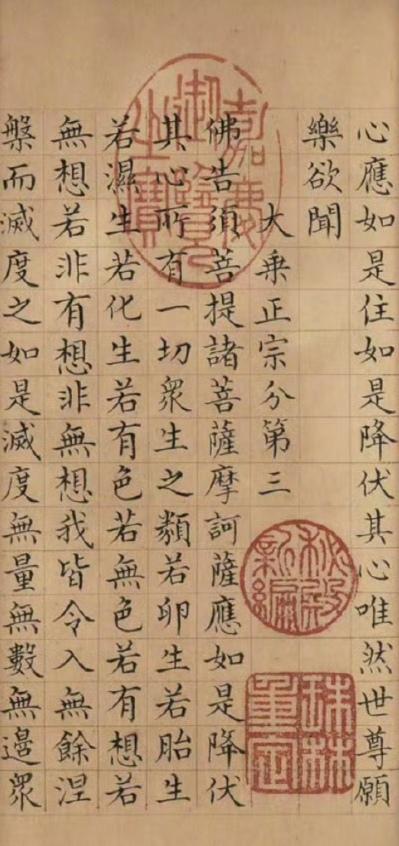 心應如是住如是降伏其心唯然世尊願
樂欲聞
大乘正宗分第三
佛告須菩提諸菩薩摩訶薩應如是降伏
其心所有一切衆生之類若卵生若胎生
若濕生若化生若有色若無色若有想若
無想若非有想非無想我皆令入無餘涅
槃而滅度之如是滅度無量無數無邊衆
嘉慶
御覽
之寶
秘殿
新編
珠林
重定